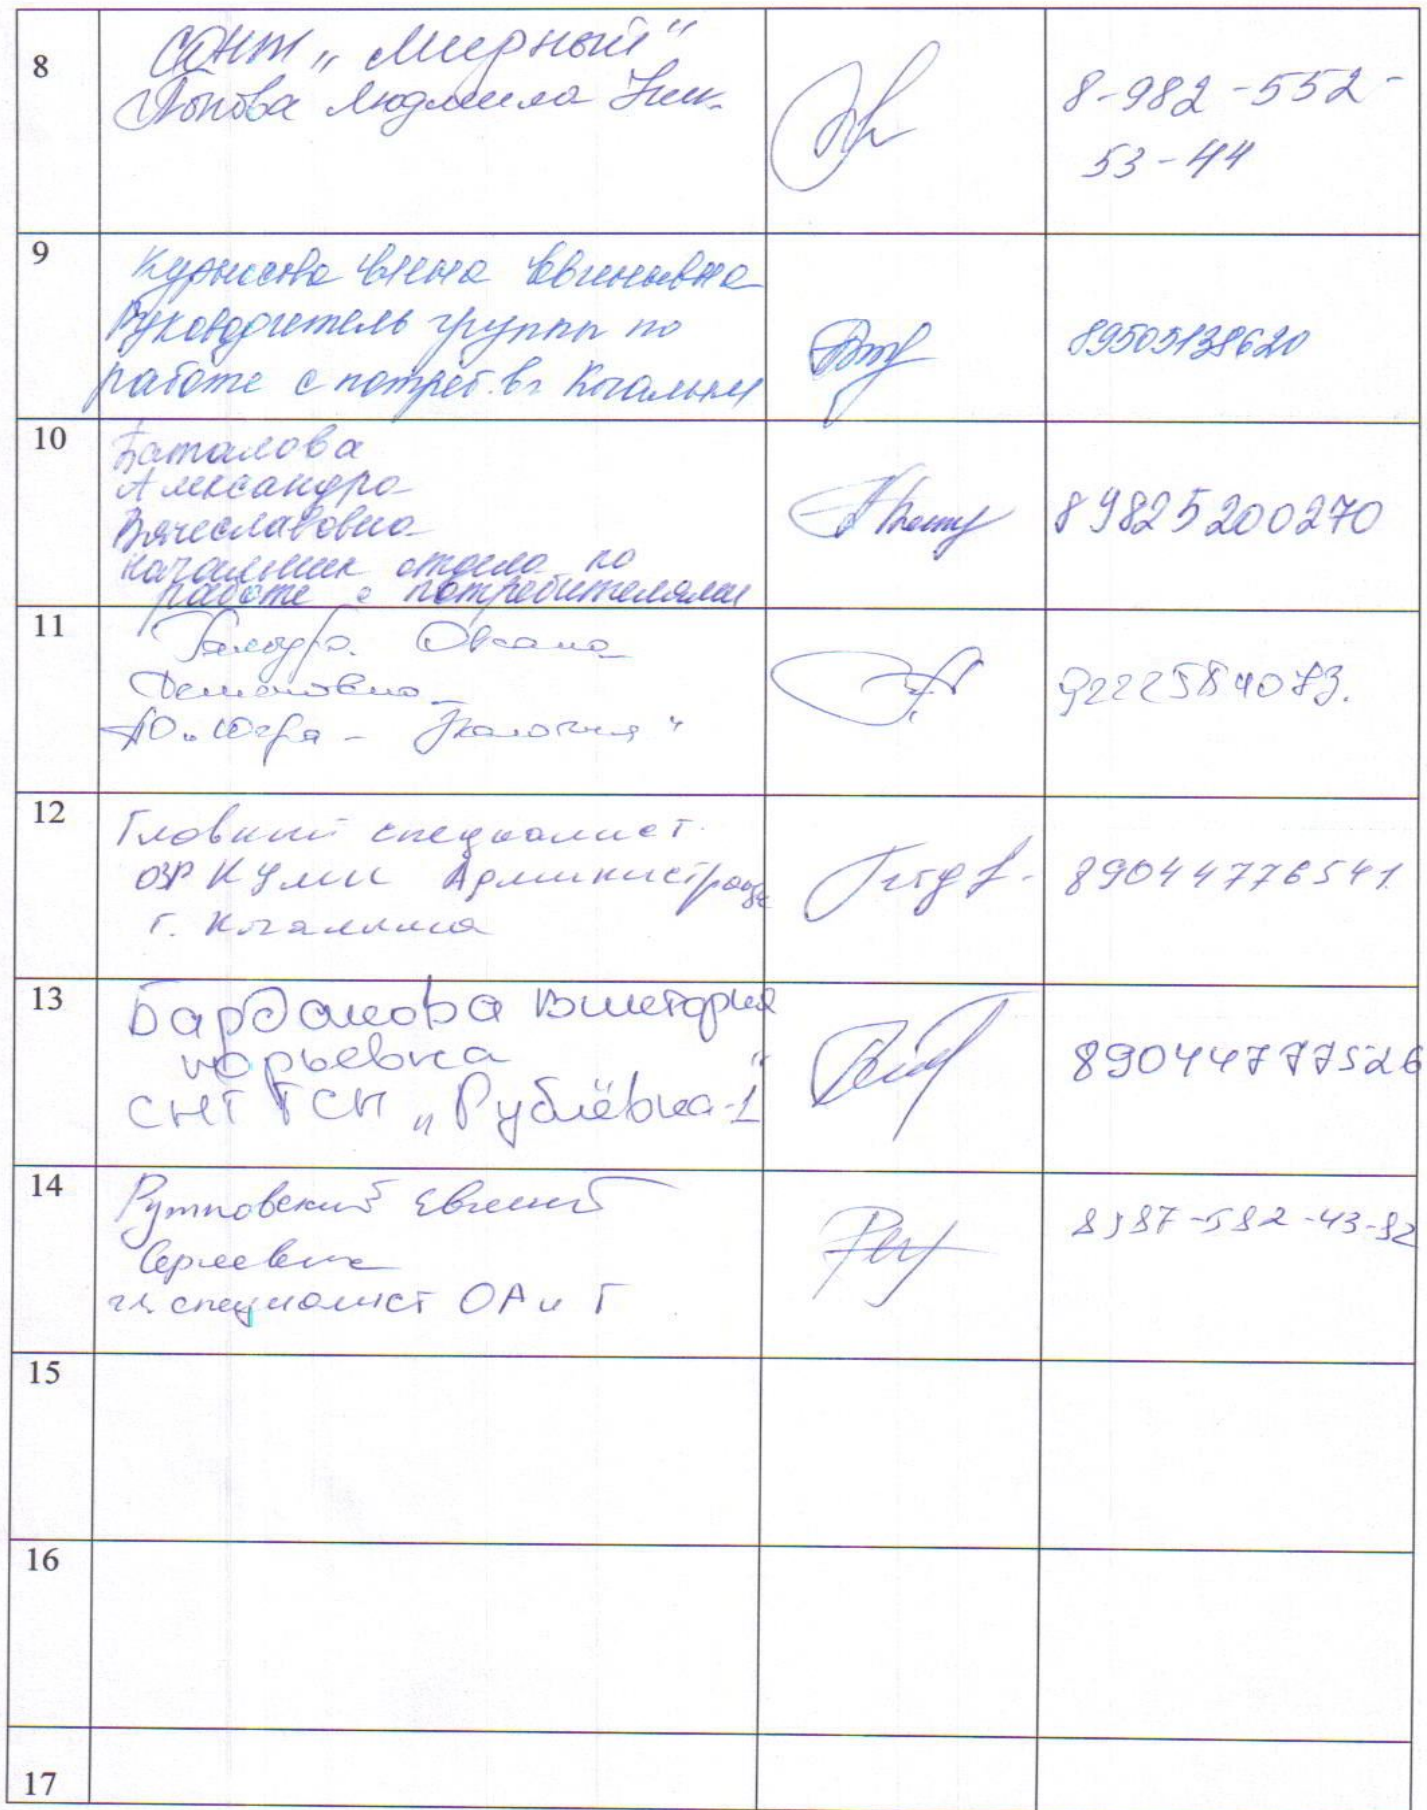 8
СОНТ „Мирный“
Попова Людмила Ник.
8-982-552-
53-44
9
Елена Евгеньевна
Руководитель группы по
работе с потреб. в г. Когалым
89505138620
10
Баталова
Александра
Вячеславовна
начальник отдела по
работе с потребителями
89825200270
11
Оксана
АО „Югра - Экология“
9222584073.
12
Главный специалист
ОЗР КУМИ Администрации
г. Когалыма
89044776541
13
Виктория
Юрьевна
СНТ ТСН „Рублёвка-1“
89044777526
14
Рутковский Евгений
Сергеевич
гл. специалист ОА и Г
15
16
17